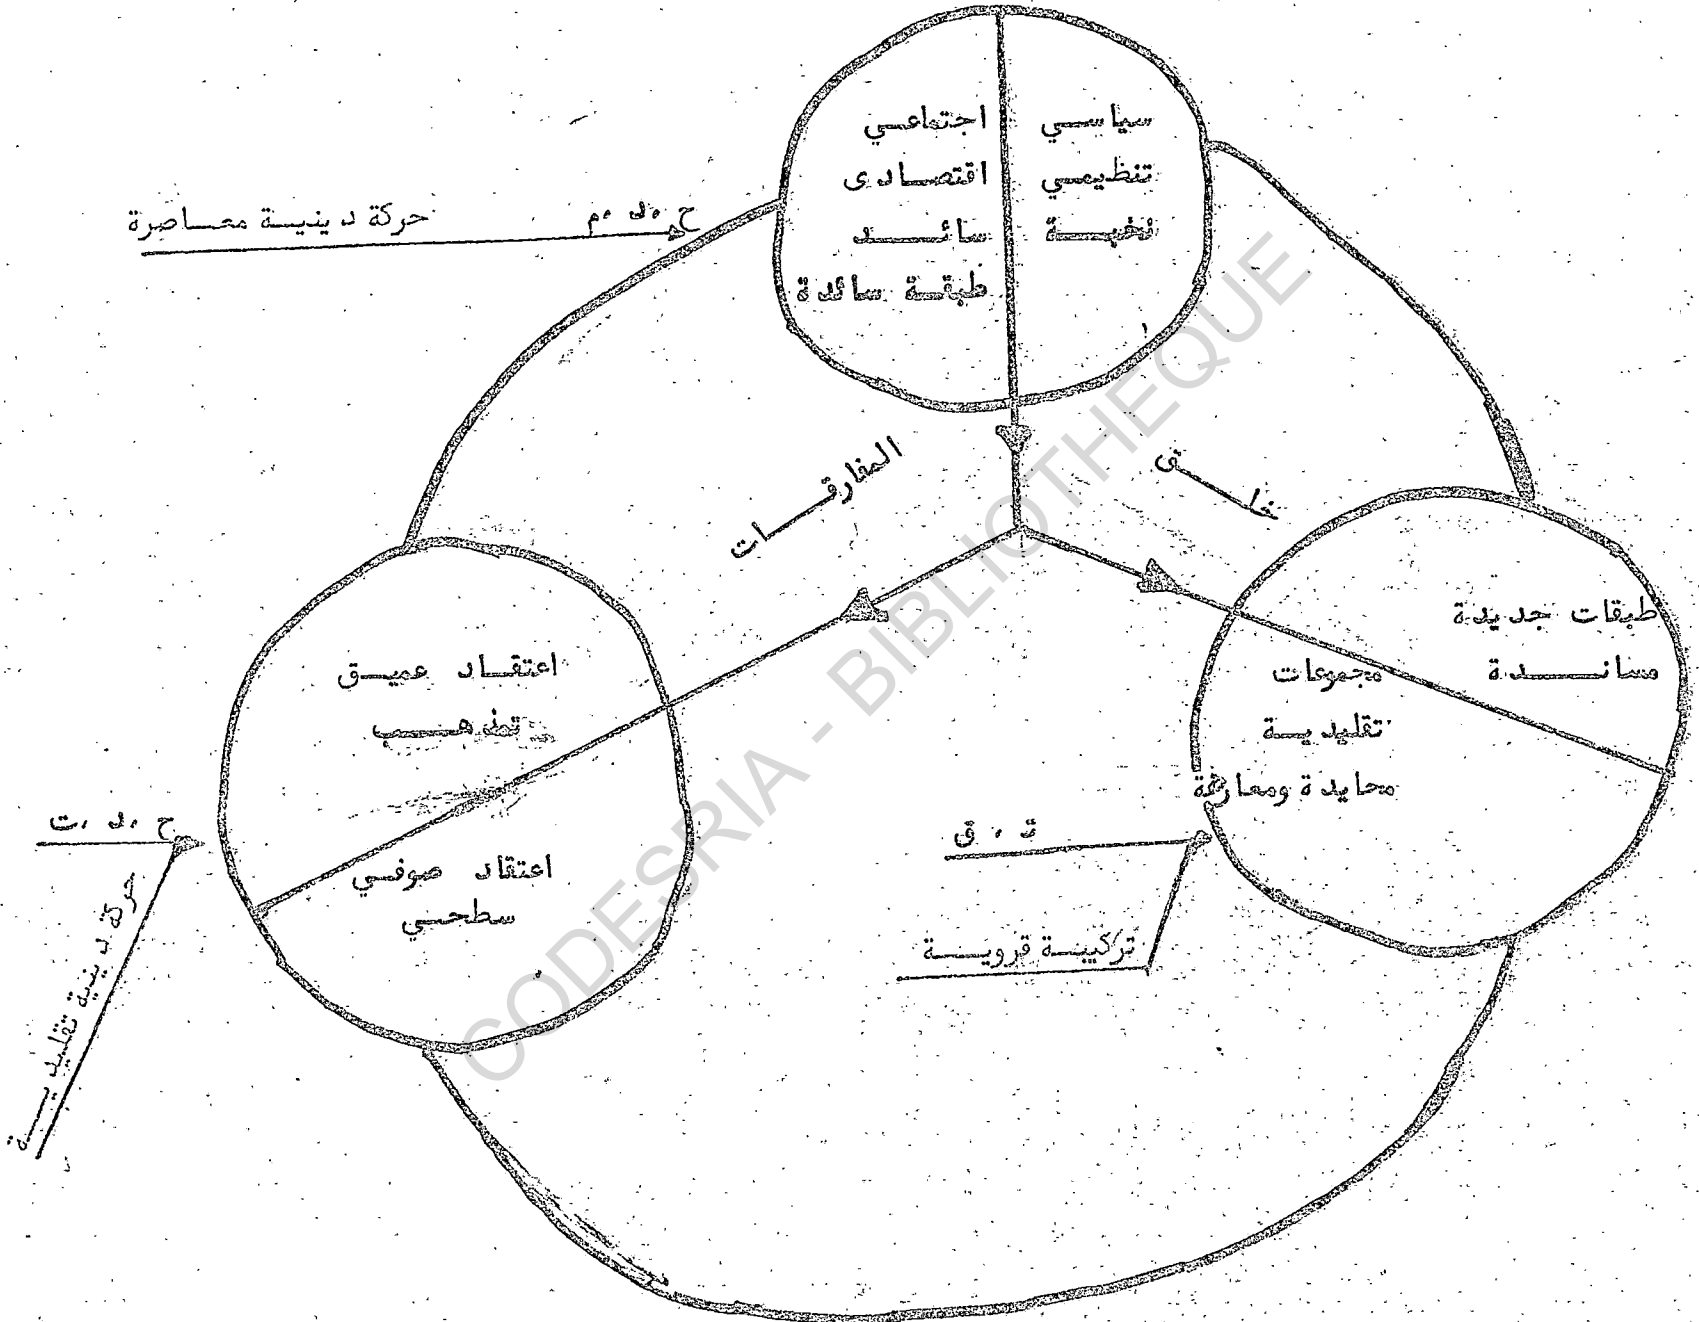 سياسي
تنظيمي
نخبة
اجتماعي
اقتصادى
سائد
طبقة سائدة
ح.د.م حركة دينية معاصرة
خلق
المفارقات
طبقات جديدة
مساندة
مجموعات
تقليدية
محايدة ومعارضة
اعتقاد عميق
تمذهب
اعتقاد صوفي
سطحي
ت.ق
تركيبة قروية
ح.د.ت
حركة دينية تقليدية
CODESRIA - BIBLIOTHEQUE